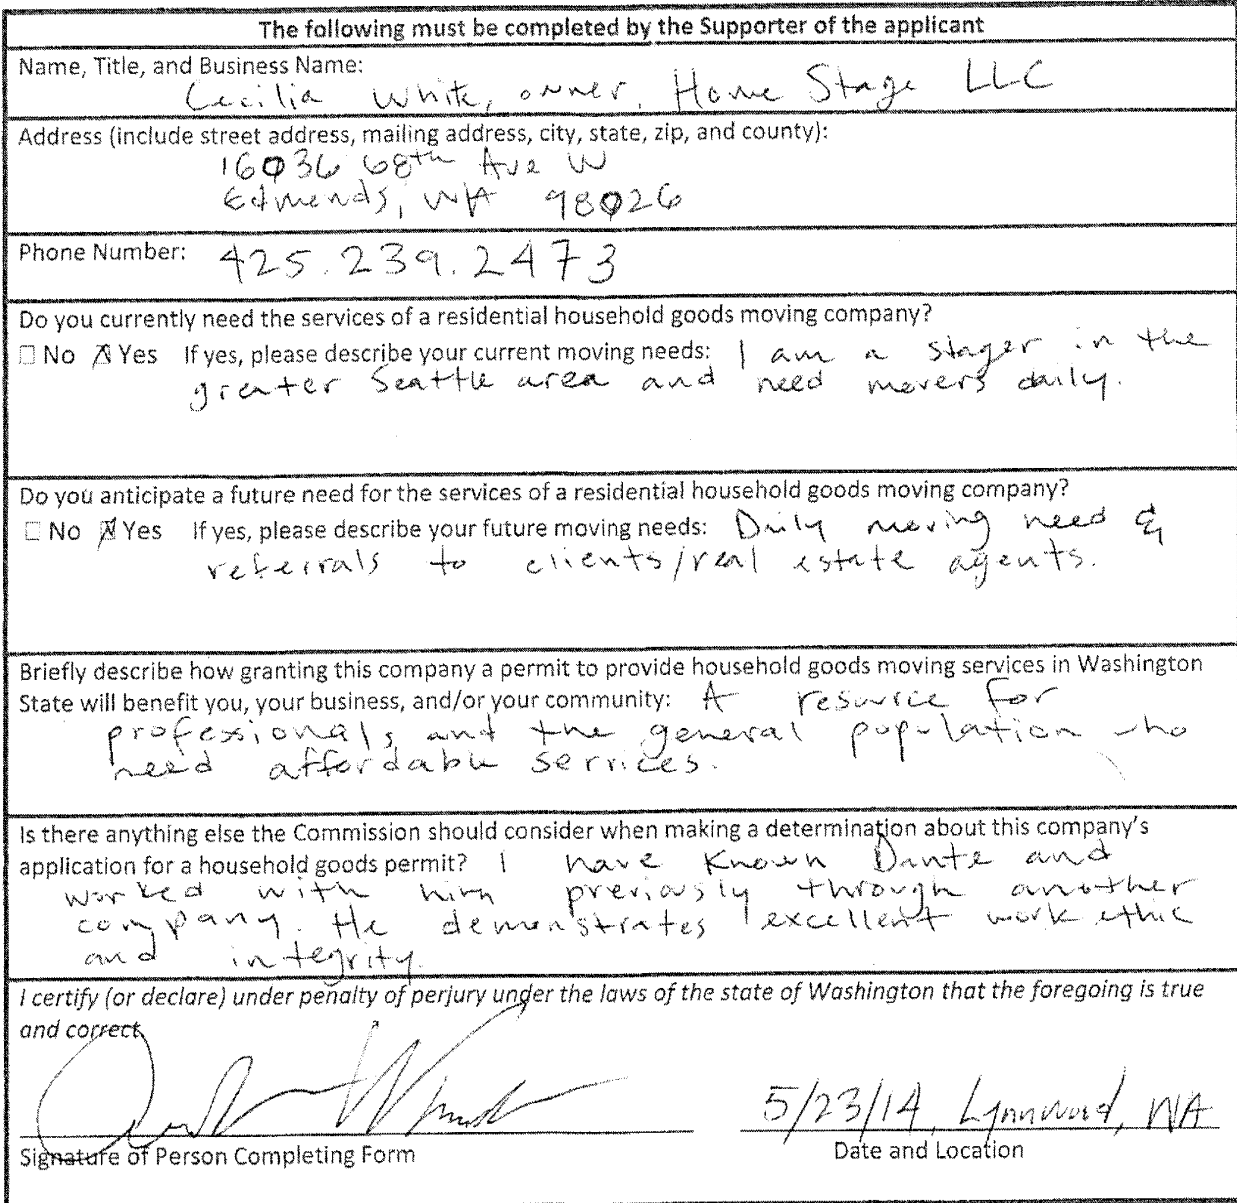 The following must be completed by the Supporter of the applicant
Name, Title, and Business Name:
Cecilia White, owner, Home Stage LLC
Address (include street address, mailing address, city, state, zip, and county):
16036 68th Ave W
Edmonds, WA 98026
Phone Number: 425.239.2473
Do you currently need the services of a residential household goods moving company?
☐ No ☒ Yes If yes, please describe your current moving needs: I am a stager in the
greater Seattle area and need movers daily.
Do you anticipate a future need for the services of a residential household goods moving company?
☐ No ☒ Yes If yes, please describe your future moving needs: Daily moving need &
referrals to clients/real estate agents.
Briefly describe how granting this company a permit to provide household goods moving services in Washington
State will benefit you, your business, and/or your community: A resource for
professionals and the general population who
need affordable services.
Is there anything else the Commission should consider when making a determination about this company's
application for a household goods permit? I have known Dante and
worked with him previously through another
company. He demonstrates excellent work ethic
and integrity.
I certify (or declare) under penalty of perjury under the laws of the state of Washington that the foregoing is true
and correct.
5/23/14, Lynnwood, WA
Signature of Person Completing Form Date and Location